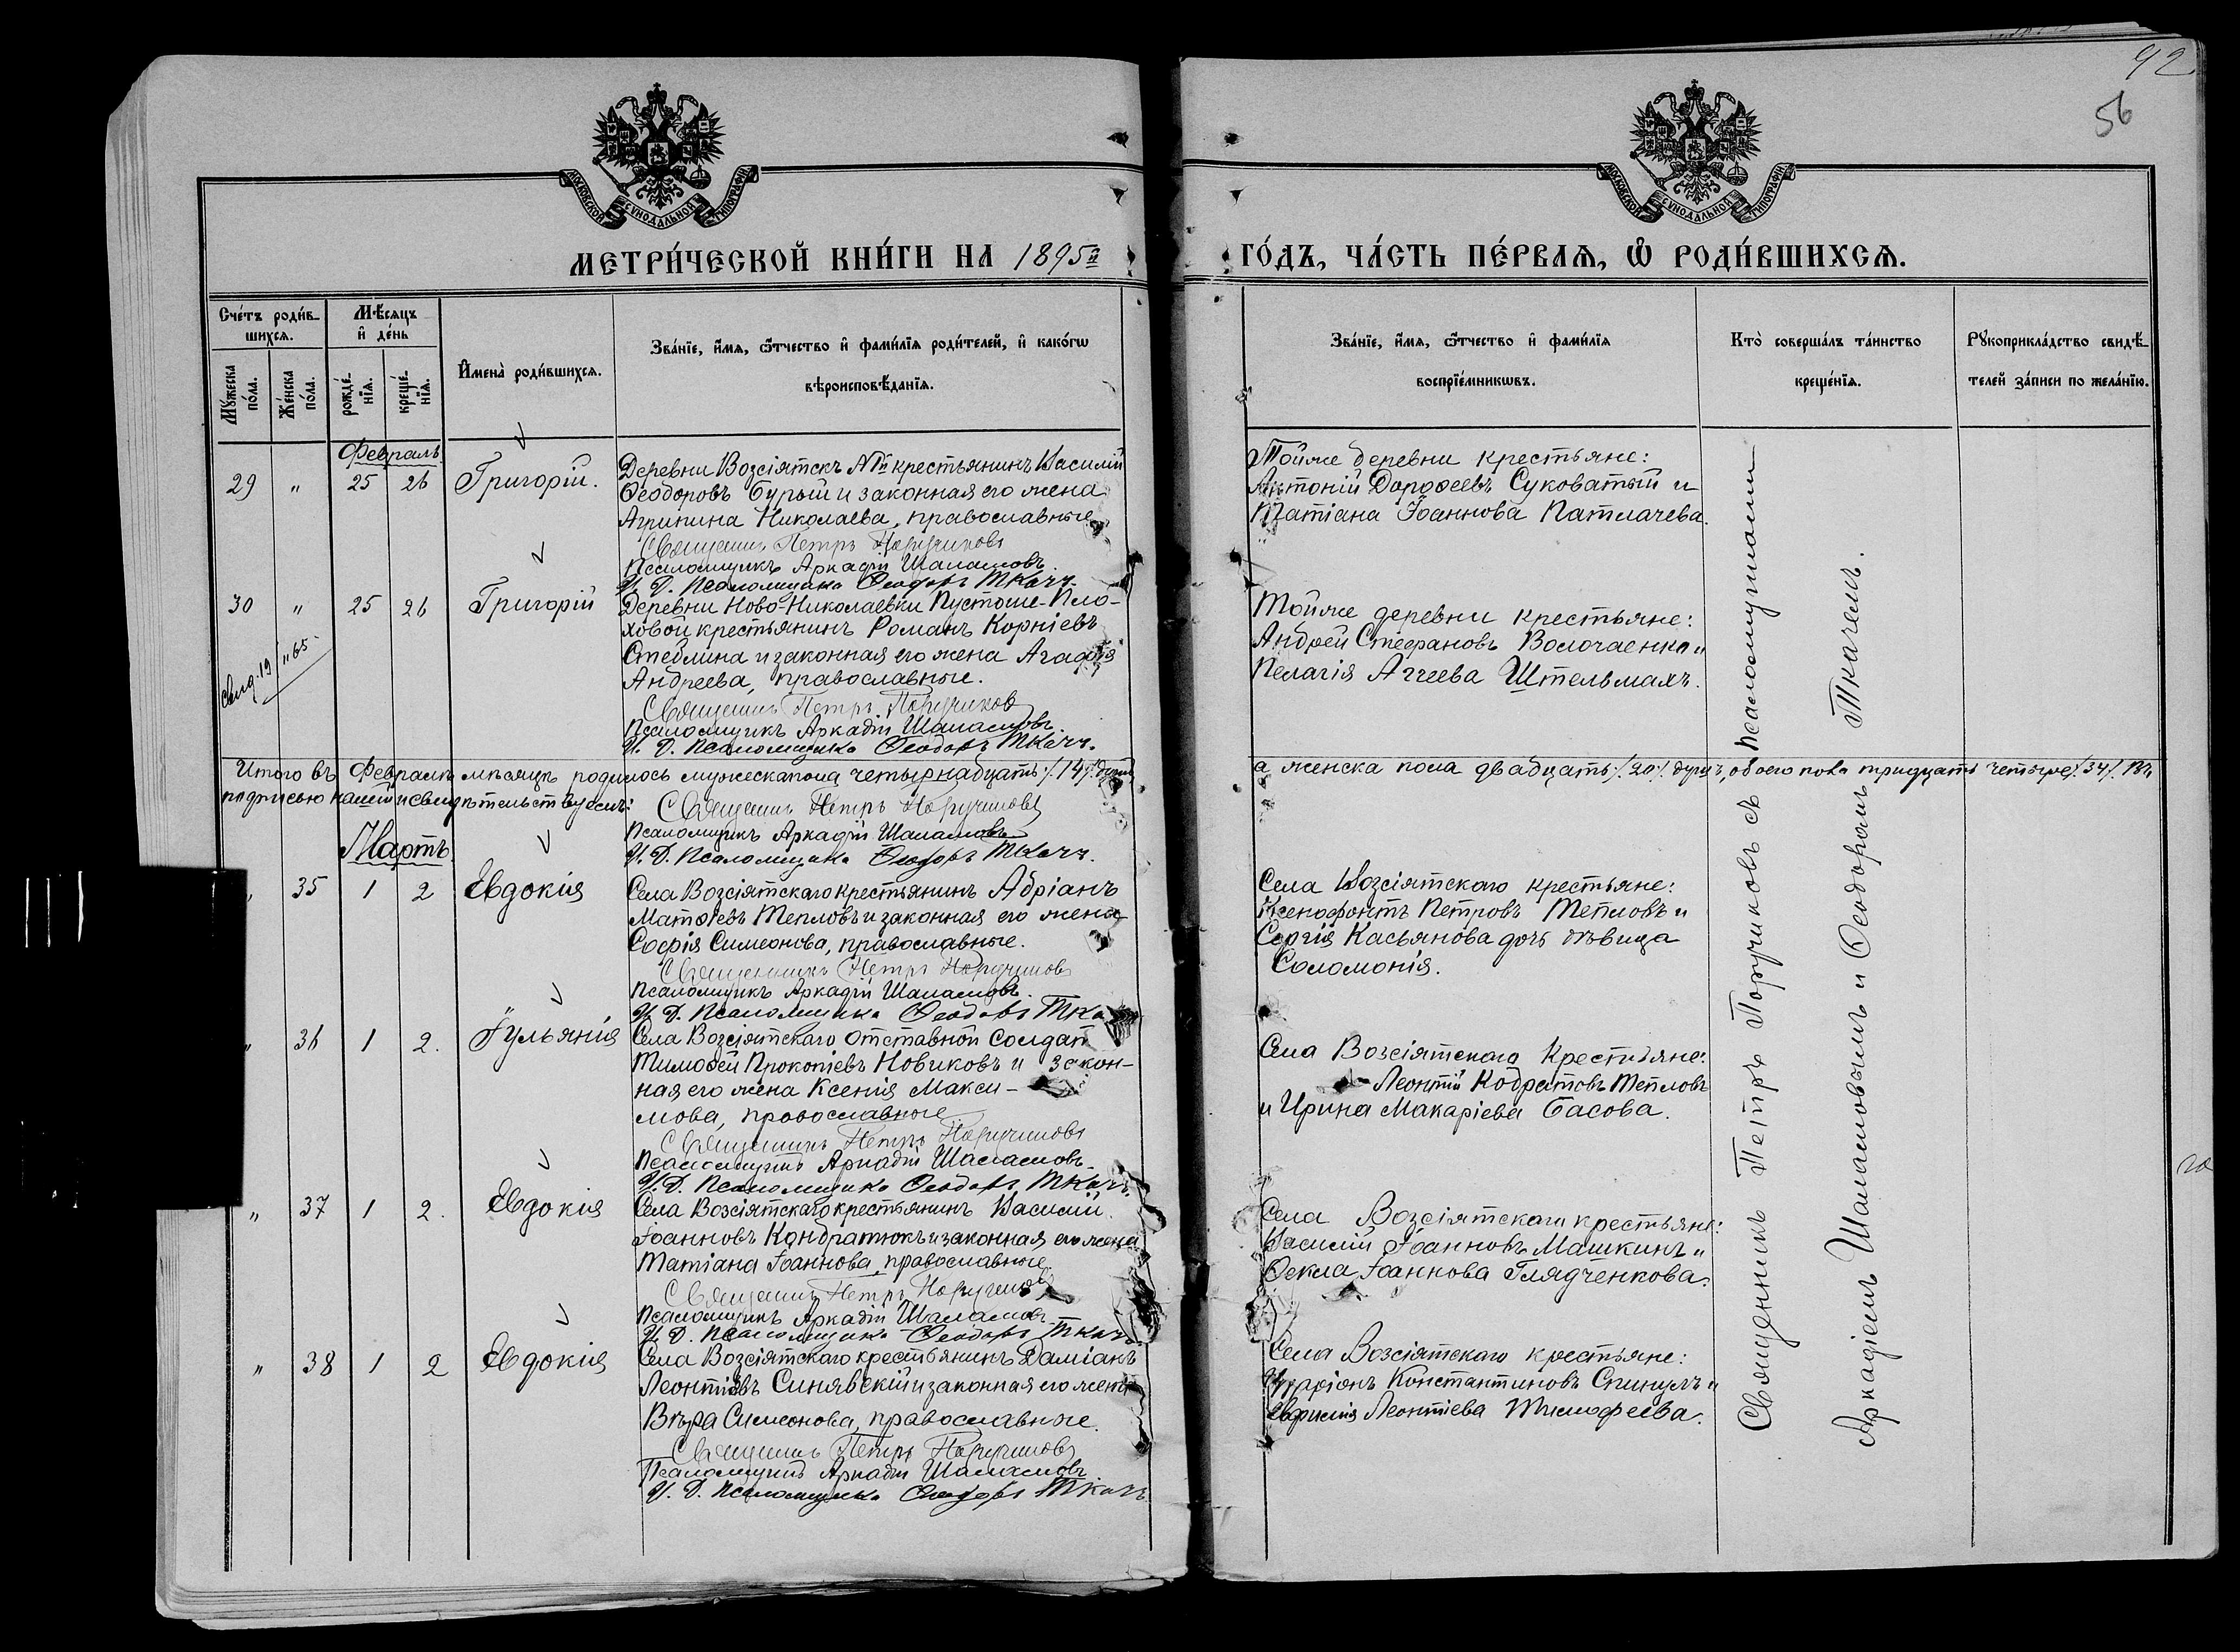 92
56
МОСКОВСКОЙ СѴНОДАЛЬНОЙ ТИПОГРАФІИ
МОСКОВСКОЙ СѴНОДАЛЬНОЙ ТИПОГРАФІИ
МЕТРИ́ЧЕСКОЙ КНИ́ГИ НА 1895й
ГО́ДЪ, ЧА́СТЬ ПЕ́РВАѦ, Ѡ РОДИ́ВШИХСѦ.
Сче́тъ роди́в-
шихсѧ.
Мꙋ́жеска по́ла.
Же́нска по́ла.
Мѣ́сѧцъ
и҆ де́нь
рожде́-
нїѧ.
креще́-
нїѧ.
И҆мена̀ роди́вшихсѧ.
Зва́нїе, и҆́мѧ, ѻ҆́тчество и҆ фами́лїѧ роди́телей, и҆ како́гѡ
вѣроисповѣ́данїѧ.
Зва́нїе, и҆́мѧ, ѻ҆́тчество и҆ фами́лїѧ
воспрїе́мникѡвъ.
Кто̀ соверша́лъ та́инство
креще́нїѧ.
Рꙋкоприкла́дство свидѣ́-
телей за́писи по жела́нїю.
Февраль
29 " 25 26 Григорій.
Деревни Возсіятскъ №ІІ крестьянинъ Василій
Ѳеодоровъ Бурый и законная его жена
Агрипина Николаева, православные
Священникъ Петръ Поручиковъ
Псаломщикъ Аркадій Шаламовъ.
И. Д. Псаломщика Ѳеодоръ Ткачъ.
Тойже деревни крестьяне:
Антоній Дороѳеевъ Суковатый и
Татіана Іоаннова Патлачева.
30 " 25 26 Григорій
Деревни Ново-Николаевки Пустоше-Пло-
ховой крестьянинъ Романъ Корніевъ
Стеблина и законная его жена Агафія
Андреева, православные.
Священникъ Петръ Поручиковъ
Псаломщикъ Аркадій Шаламовъ
И. Д. Псаломщика Ѳеодоръ Ткачъ.
Тойже деревни крестьяне:
Андрей Стефановъ Волочаенко и
Пелагія Аггеева Штельмахъ.
Итого въ Февралѣ мѣсяцѣ родилось мужеска пола четырнадцать /.14./ душъ
а женска пола двадцать /.20./ душъ, обоего пола тридцать четыре /.34./. Въ
подписью нашей и свидѣтельствуемъ:
Священникъ Петръ Поручиковъ
Псаломщикъ Аркадій Шаламовъ
И. Д. Псаломщика Ѳеодоръ Ткачъ.
Мартъ.
" 35 1 2 Евдокія
Села Возсіятскаго крестьянинъ Адріанъ
Матѳеевъ Тепловъ и законная его жена
Софія Симеонова, православные.
Священникъ Петръ Поручиковъ
Псаломщикъ Аркадій Шаламовъ.
И. Д. Псаломщика Ѳеодоръ Тка
Села Возсіятскаго крестьяне:
Ксенофонтъ Петровъ Тепловъ и
Сергія Касьянова дочь дѣвица
Соломонія.
" 36 1 2. Іульянія
Села Возсіятскаго отставной солдат
Тимоѳей Прокопіевъ Новиковъ и закон-
ная его жена Ксенія Макси-
мова, православные
Священникъ Петръ Поручиковъ
Псаломщикъ Аркадій Шаламовъ.
И. Д. Псаломщика Ѳеодоръ Ткачъ
Села Возсіятскаго крестьяне:
Леонтій Кодратовъ Тепловъ
и Ирина Макаріева Басова.
" 37 1 2. Евдокія
Села Возсіятскаго крестьянинъ Василій
Іоанновъ Кондратюкъ и законная его жена
Татіана Іоаннова, православные
Священникъ Петръ Поручиковъ
Псаломщикъ Аркадій Шаламовъ
И. Д. Псаломщика Ѳеодоръ Ткачъ
Села Возсіятскаго крестьяне:
Василій Іоанновъ Машкинъ и
Ѳекла Іоаннова Глядченкова.
" 38 1 2 Евдокія
Села Возсіятскаго крестьянинъ Даміанъ
Леонтіевъ Синявскій и законная его жена
Вѣра Симеонова, православные.
Священникъ Петръ Поручиковъ
Псаломщикъ Аркадій Шаламовъ
И. Д. Псаломщика Ѳеодоръ Ткачъ
Села Возсіятскаго крестьяне:
Константиновъ Спинулъ и
Евфимія Леонтіева Тимофеева.
Священникъ Петръ Поручиковъ съ псаломщиками
Аркадіемъ Шаламовымъ и Ѳеодоромъ Ткачемъ.